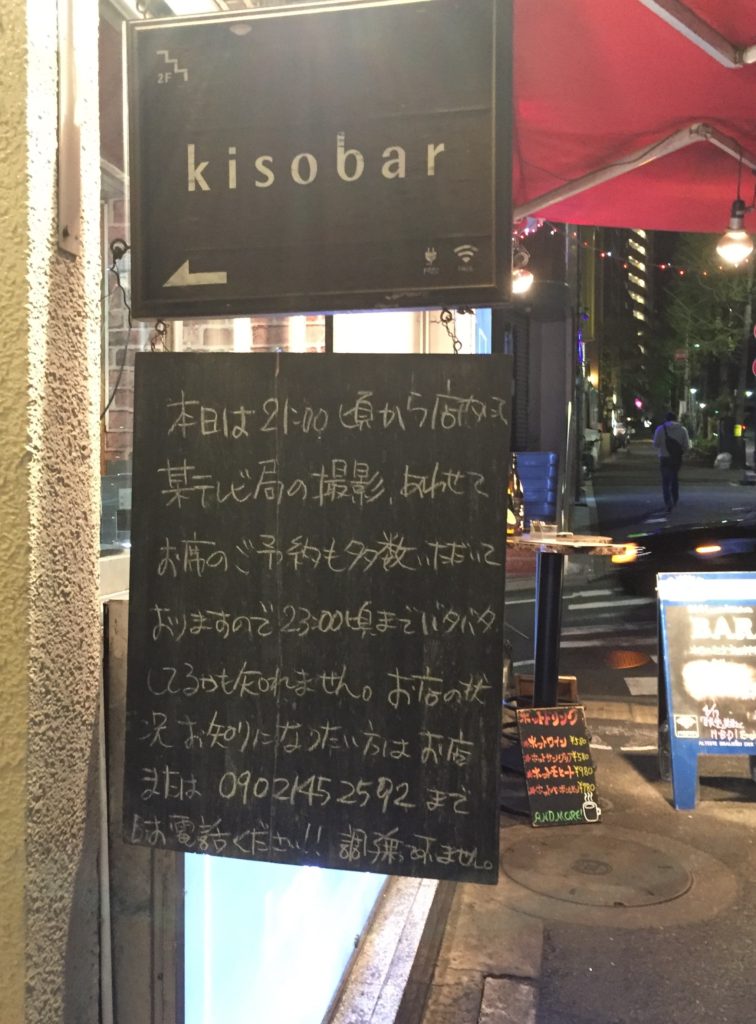 2F
kisobar
FREE
FREE
本日は21:00頃から店内にて
某テレビ局の撮影、あわせて
お席のご予約も多数いただいて
おりますので23:00頃までバタバタ
してるかも知れません。お店の状
況お知りになりたい方はお店
または 09021452592 まで
お電話ください!!
BAR
ホットドリンク
ホットワイン ¥580
ホットサングリア ¥580
ホットモヒート ¥980
¥780
AND MORE!